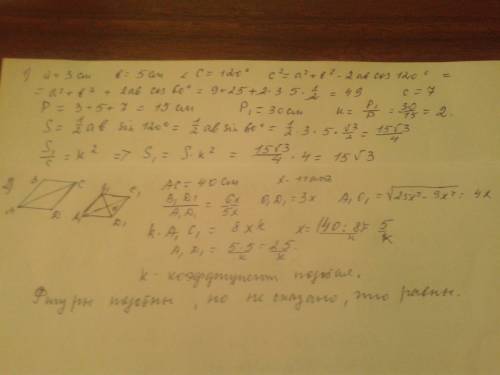 1) a=3 cm b=5 cm ∠C=120° c²=a²+b²-2ab cos 120° =
= a²+b²+2ab cos 60° = 9+25+2·3·5·1/2 = 49 c=7
P=3+5+7=15 cm P₁=30 cm k=P₁/P=30/15=2.
S=1/2 ab sin 120°=1/2 ab sin 60°=1/2·3·5·√3/2=15√3/4
S₁/S=k² => S₁=S·k²=15√3/4·4=15√3
2) B C A D B₁ C₁ D₁ AC=40 см
B₁D₁/A₁D₁=6x/5x O₁D₁=3x A₁C₁=√25x²-9x²=4x
k·A₁C₁=8xk x=(40:8)/k=5/k
A₁D₁=5·5/k=25/k.
k-коэффициент подобия.
Фигуры подобны, но не сказано, что равны.